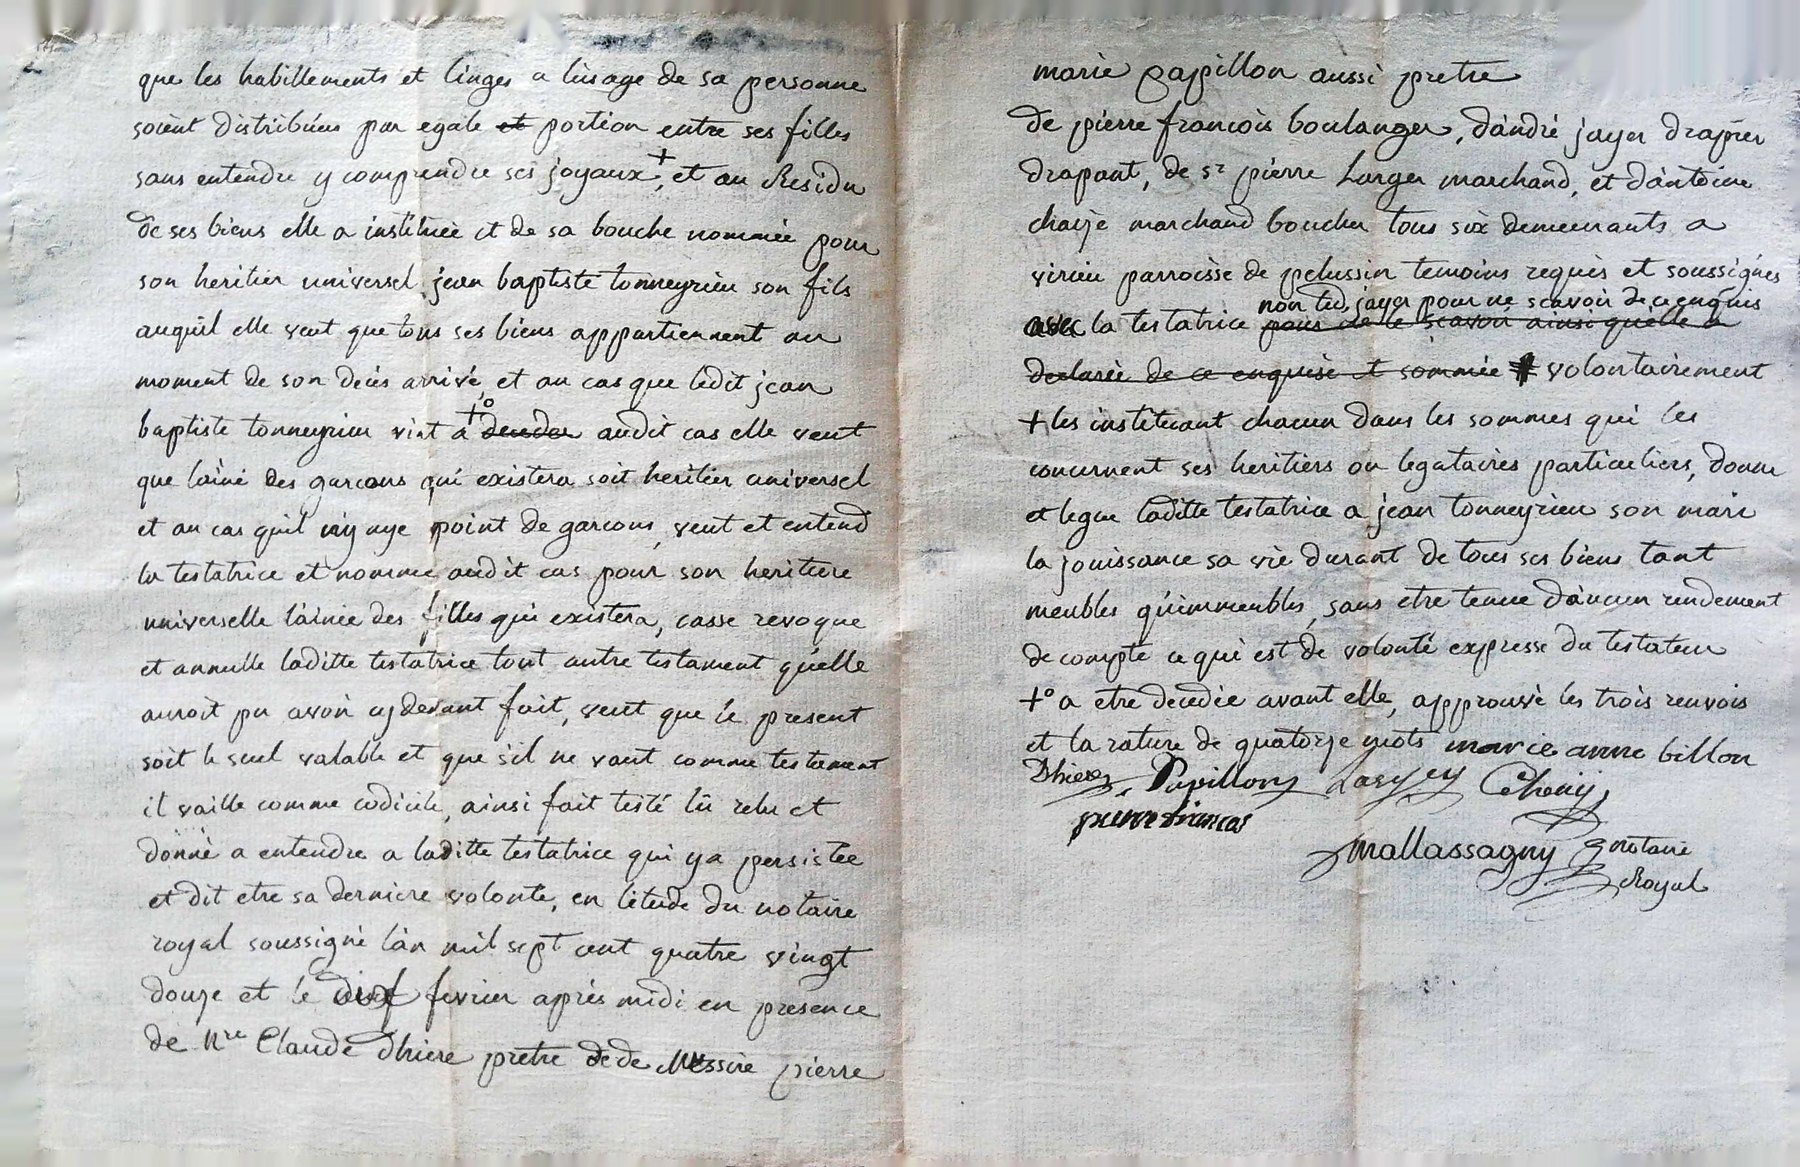 que les habillements et linges a l'usage de sa personne
soient distribuées par egale et portion entre ses filles
sans entendre y comprendre ses joyaux +, et au Residu
de ses biens elle a instituée et de sa bouche nommée pour
son heritier universel jean baptiste tonneyrieu son fils
auquil elle veut que tous ses biens appartiennent au
moment de son decès arrivé, et au cas que ledit jean
baptiste tonneyrieu vint a +° deceder audit cas elle veut
que l'ainé des garcons qui existera soit heritier universel
et au cas qu'il n'y aye point de garcons, veut et entend
la testatrice et nomme audit cas pour son heritiere
universelle l'ainée des filles qui existera, casse revoque
et annulle laditte testatrice tout autre testament qu'elle
auroit pu avoir cy devant fait, veut que le present
soit le seul valable et que s'il ne vaut comme testament
il vaille comme codicile, ainsi fait testé lû relu et
donné a entendre a laditte testatrice qui y a persistée
et dit etre sa derniere volonté, en l'etude du notaire
royal soussigné l'an mil sept cent quatre vingt
douze et le dix fevrier après midi en presence
de Mre Claude dhiere pretre de de Messire pierre
marie papillon aussi pretre
de pierre francois boulanger, d'andré jayer drapier
drapant, de sr pierre Larger marchand, et d'antoine
marchand boucher tous six demeurants a
virieu parroisse de pelussin temoins requis et soussignés
non led. jayer pour ne scavoir de ce enquis
avec la testatrice pour ne le scavoir ainsi qu'elle a
declarée de ce enquise et sommée # volontairement
+ les instituant chacun dans les sommes qui les
concernent ses heritiers ou legataires particuliers, donne
et legue laditte testatrice a jean tonneyrieu son mari
la jouissance sa vie durant de tous ses biens tant
meubles qu'immeubles, sans etre tenue d'aucun rendement
de compte ce qui est de volonté expresse du testateur
+° a etre decedée avant elle, approuvé les trois renvois
et la rature de quatorze mots marie anne billon
Dhiere Papillon
pierre francois
Mallassagny notaire
Royal